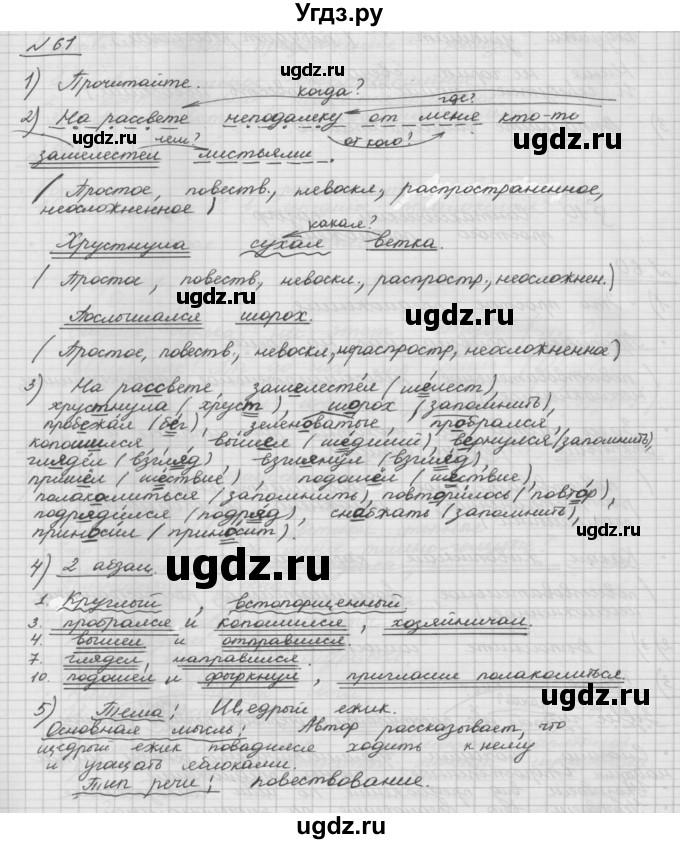 Угдз.ру
№ 61
1) Прочитайте.
когда?
где?
2) На рассвете неподалеку от меня кто-то
чем?
от кого?
зашелестел листьями.
(Простое, повеств., невоскл., распространенное,
неосложненное)
какая?
Хрустнула сухая ветка.
(Простое, повеств, невоскл., распростр., неосложнен.)
Послышался шорох.
(Простое, повеств., невоскл, нераспростр, неосложненное)
3) На рассвете зашелестел (шелест),
хрустнула (хруст), шорох (запомнить),
пробежал (бег), зеленоватые, пробрался,
копошился вышел (шедший), вернулся (запомнить),
глядел (взгляд), взглянул (взгляд),
пришел (шествие), подошел (шествие),
полакомиться (запомнить), повторилось (повтор),
подрядился (подряд), снабжать (запомнить),
приносил (приносит).
4) 2 абзац.
1. Круглый, встопорщенный.
3. пробрался и копошился, хозяйничал.
4. вышел и отправился
7. глядел, направился.
10. подошел и фыркнул, пригласив полакомиться.
5) Тема: Щедрый ежик.
Основная мысль: Автор рассказывает, что
щедрый ежик повадился ходить к нему
и угощать яблоками.
Тип речи: повествование.
ugdz.ru
ugdz.ru
ugdz.ru
ugdz.ru
ugdz.ru
ugdz.ru
ugdz.ru
ugdz.ru
ugdz.ru
ugdz.ru
ugdz.ru
ugdz.ru
ugdz.ru
ugdz.ru